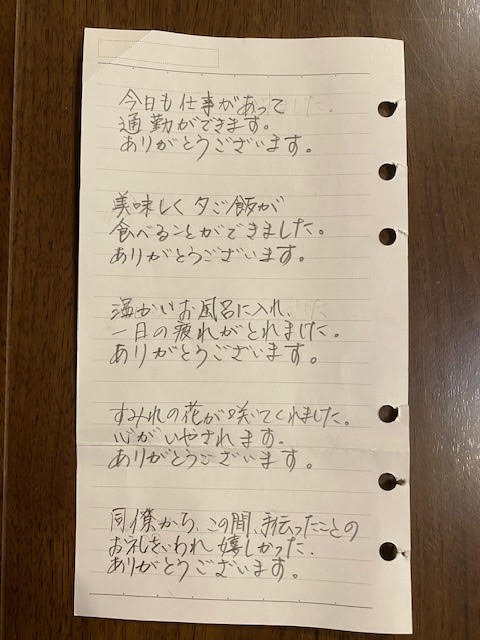 今日も仕事があって
通勤ができます。
ありがとうございます。
美味しく夕ご飯が
食べることができました。
ありがとうございます。
温かいお風呂に入れ、
一日の疲れがとれました。
ありがとうございます。
すみれの花が咲いてくれました。
心がいやされます。
ありがとうございます。
同僚から、この間、手伝ったことの
お礼をいわれ嬉しかった。
ありがとうございます。